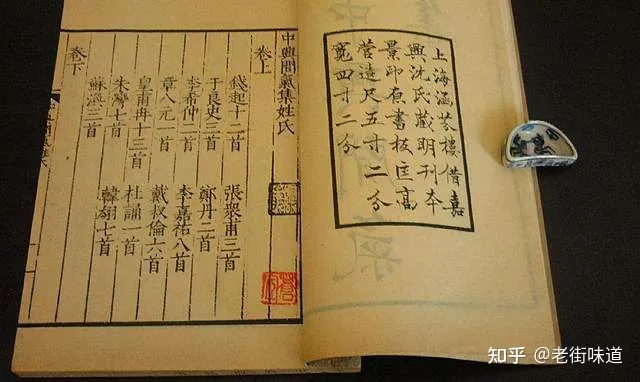 上海涵芬樓借嘉
興沈氏藏明刊本
景印原書板匡高
營造尺五寸二分
寬四寸二分
中興間氣集姓氏
卷上
錢起十二首 張衆甫三首
于良史三首 鄭丹二首
李希仲二首 李嘉祐八首
章八元一首 戴叔倫六首
皇甫冉十三首 杜誦一首
朱灣七首 韓翃七首
蘇渙三首
卷下
知乎 @老街味道